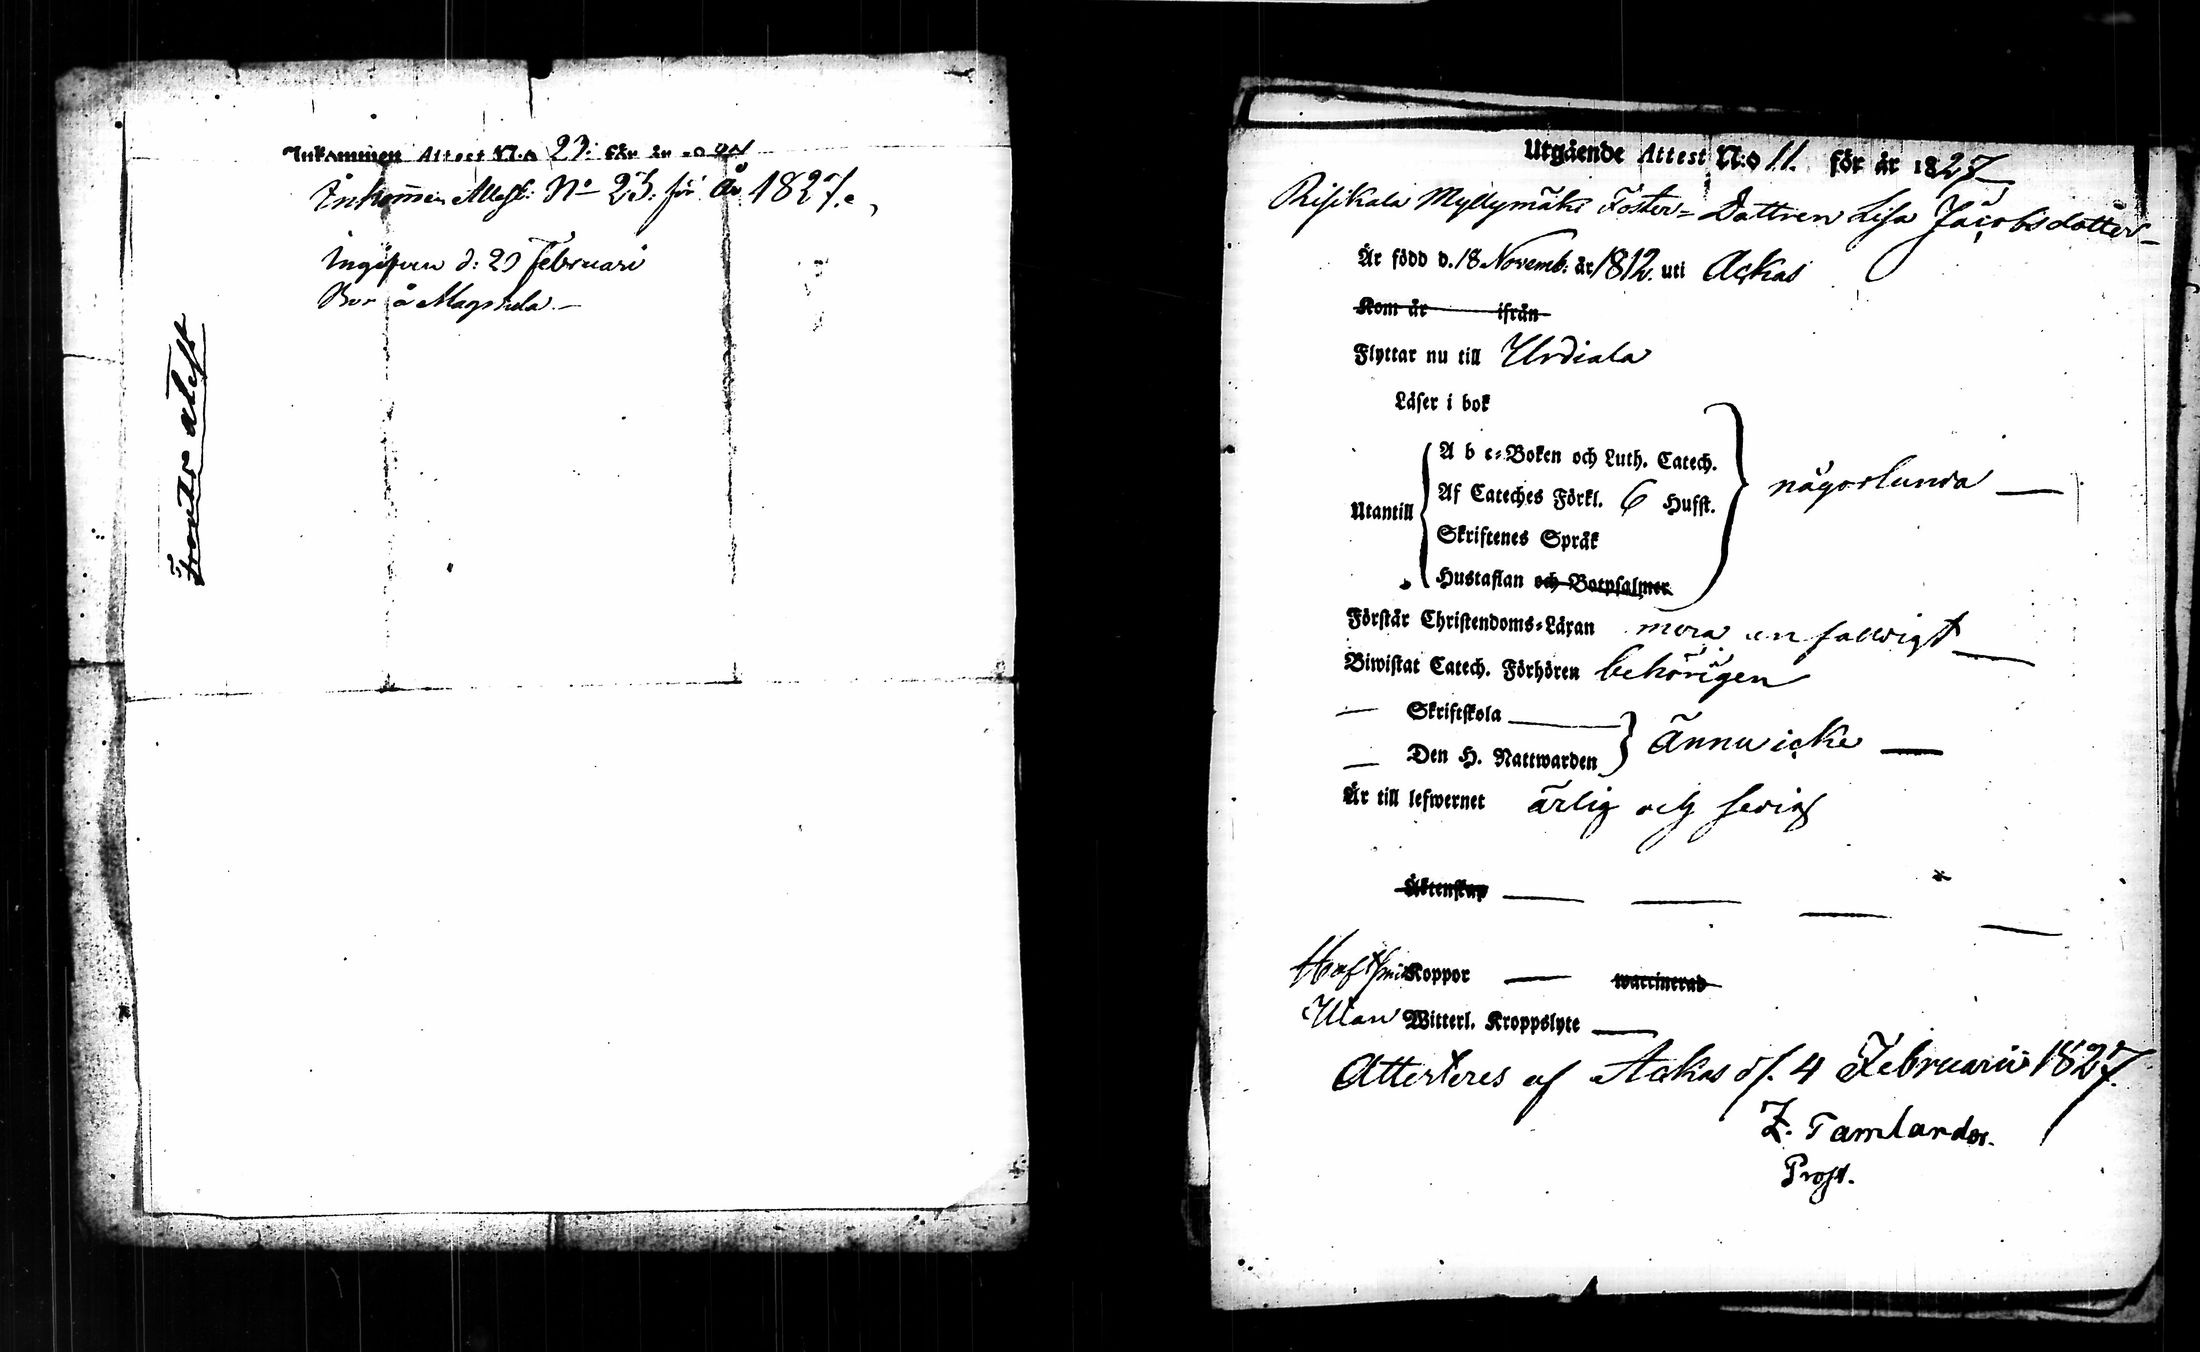 Inkommen Attest N:o 23. för år
Inkommen Attest: No 23. för År 1827.
Ingifven d: 25 Februari
Bor å
Utgående Attest N:o 11. för år 1827
Risikala Myllymäki Foster-Dottren Lisa Jacobsdotter
Är född d. 18 Novemb. år 1812. uti Ackas
Kom år ifrån
Flyttar nu till Urdiala
Läser i bok
A b c-Boken och Luth. Catech.
Af Cateches Förkl. 6 Hufst.
någorlunda
Utantill
Skriftenes Språk
Hustaflan och Botpsalmer
Förstår Christendoms-Läran
Biwistat Catech. Förhören behörigen
Skriftskola
Den H. Nattwarden
ännu icke
Är till lefwernet ärlig och sedig
Äktenskap
Haft Koppor waccinerad
Utan Witterl. Kroppslyte
Attesteres af Ackas d. 4 Februarii 1827.
Z. Tamlander.
Prost.